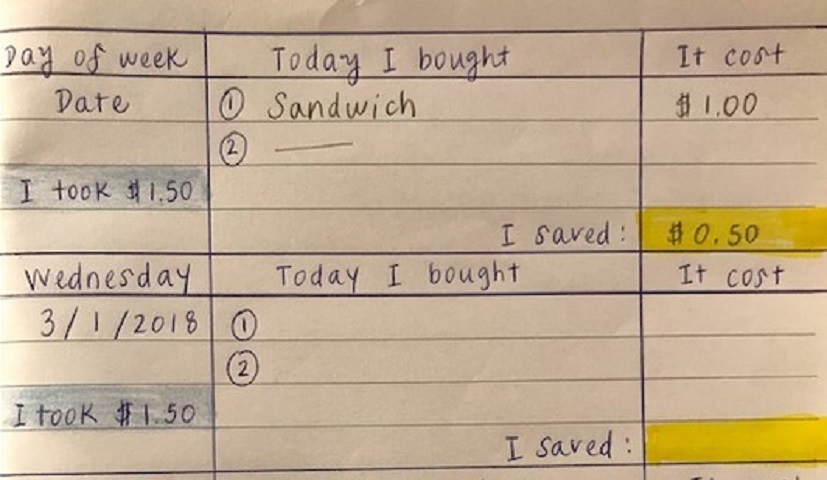 Day of week Today I bought It cost
Date ① Sandwich $1.00
② —
I took $1.50
I saved: $0.50
Wednesday Today I bought It cost
3/1/2018 ①
②
I took $1.50
I saved: